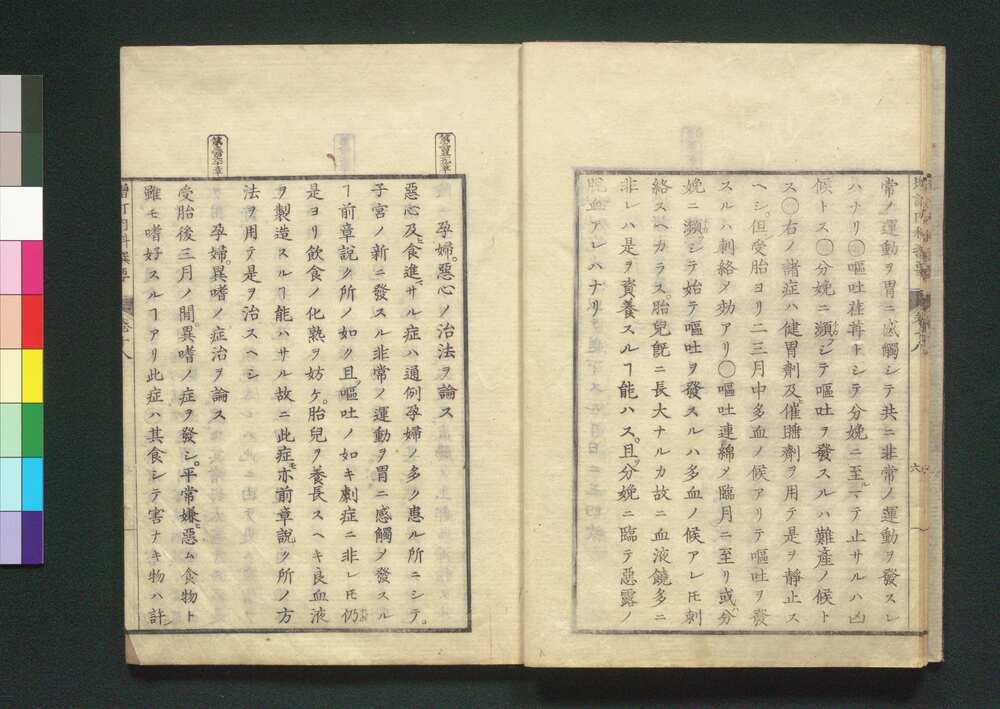 常ノ運動ヲ胃ニ感觸シテ共ニ非常ノ運動ヲ發スレ
ハナリ○嘔吐荏苒トシテ分娩ニ至ルマテ止サルハ凶
候トス○分娩ニ瀕シテ嘔吐ヲ發スルハ難產ノ候ト
ス○右ノ諸症ハ健胃劑及ヒ催睡劑ヲ用テ是ヲ靜止ス
ヘシ但受胎ヨリ二三月中多血ノ候アリテ嘔吐ヲ發
スルハ刺絡ノ効アリ○嘔吐連綿〆臨月ニ至リ或ハ分
娩ニ瀕シテ始テ嘔吐ヲ發スルハ多血ノ候アレ𪜈刺
絡スヘカラス胎兒旣ニ長大ナルカ故ニ血液饒多ニ
非レハ是ヲ資養スルヿ能ハス且ツ分娩ニ臨テ惡露ノ
脫血アレハナリ
增訂內科撰要
六
孕婦惡心ノ治法ヲ論ス
惡心及ヒ食進マサル症ハ通例孕婦ノ多ク患ル所ニシテ
子宮ノ新ニ發スル非常ノ運動ヲ胃ニ感觸〆發スル
ヿ前章說ク所ノ如ク且ツ嘔吐ノ如キ劇症ニ非レ𪜈仍
是ヨリ飮食ノ化熟ヲ妨ケ胎兒ヲ養長スヘキ良血液
ヲ製造スルヿ能ハサル故ニ此症モ亦前章說ク所ノ方
法ヲ用テ是ヲ治スヘシ
孕婦異嗜ノ症治ヲ論ス
受胎後三月ノ間異嗜ノ症ヲ發シ平常嫌惡ム食物ト
雖モ嗜好スルヿアリ此症ハ其食シテ害ナキ物ハ許シ
增訂內科撰要